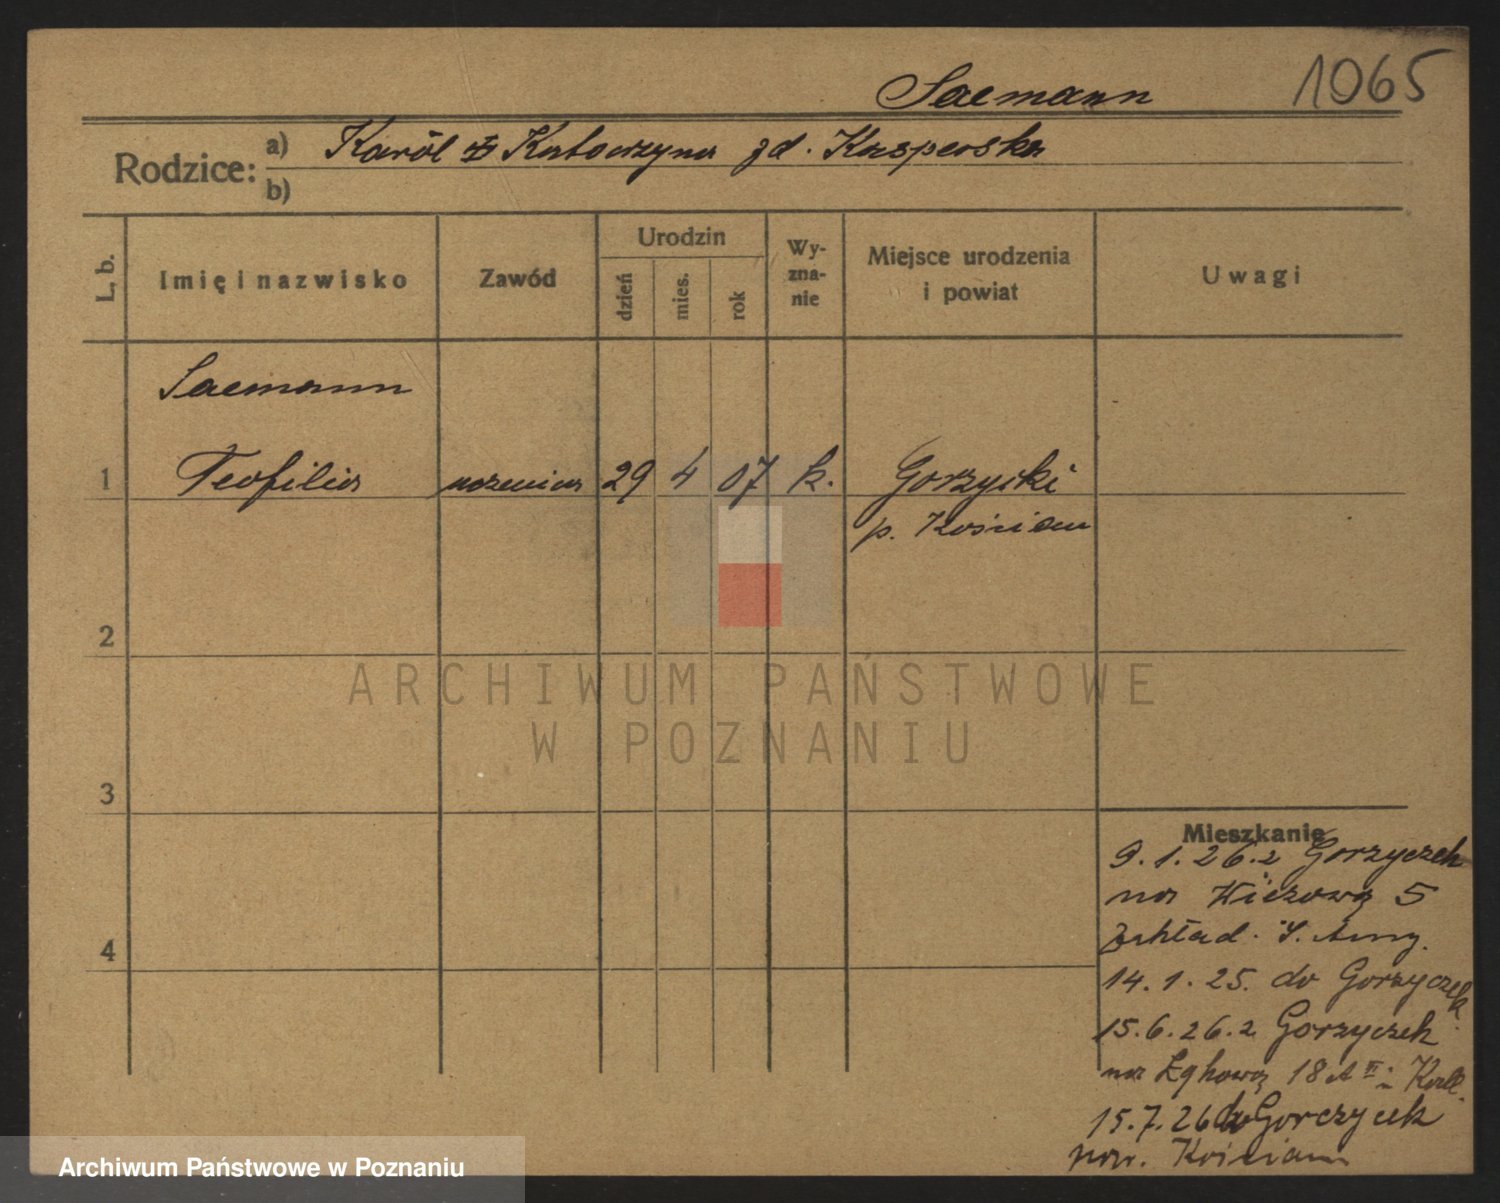 Saemann 1065
Rodzice: a) Karól Katarzyna zd. Kasperska
b)
L. b.
Imię i nazwisko
Zawód
Urodzin
dzień
mies.
rok
Wy-
zna-
nie
Miejsce urodzenia
i powiat
Uwagi
Saemann
1 Teofilia uczenica 29 4 07 k. Gorzycki
p. Kościan
2
3
4
Mieszkanie
9.1.26. z Gorzyczek
na Wieżową 5
Zakład. S.
14.1.25. do Gorzyczek.
15.6.26. z Gorzyczek
na Łąkową 18
15.7.26 do Gorczyczek
pow. Kościan
ARCHIWUM PAŃSTWOWE
W POZNANIU
Archiwum Państwowe w Poznaniu